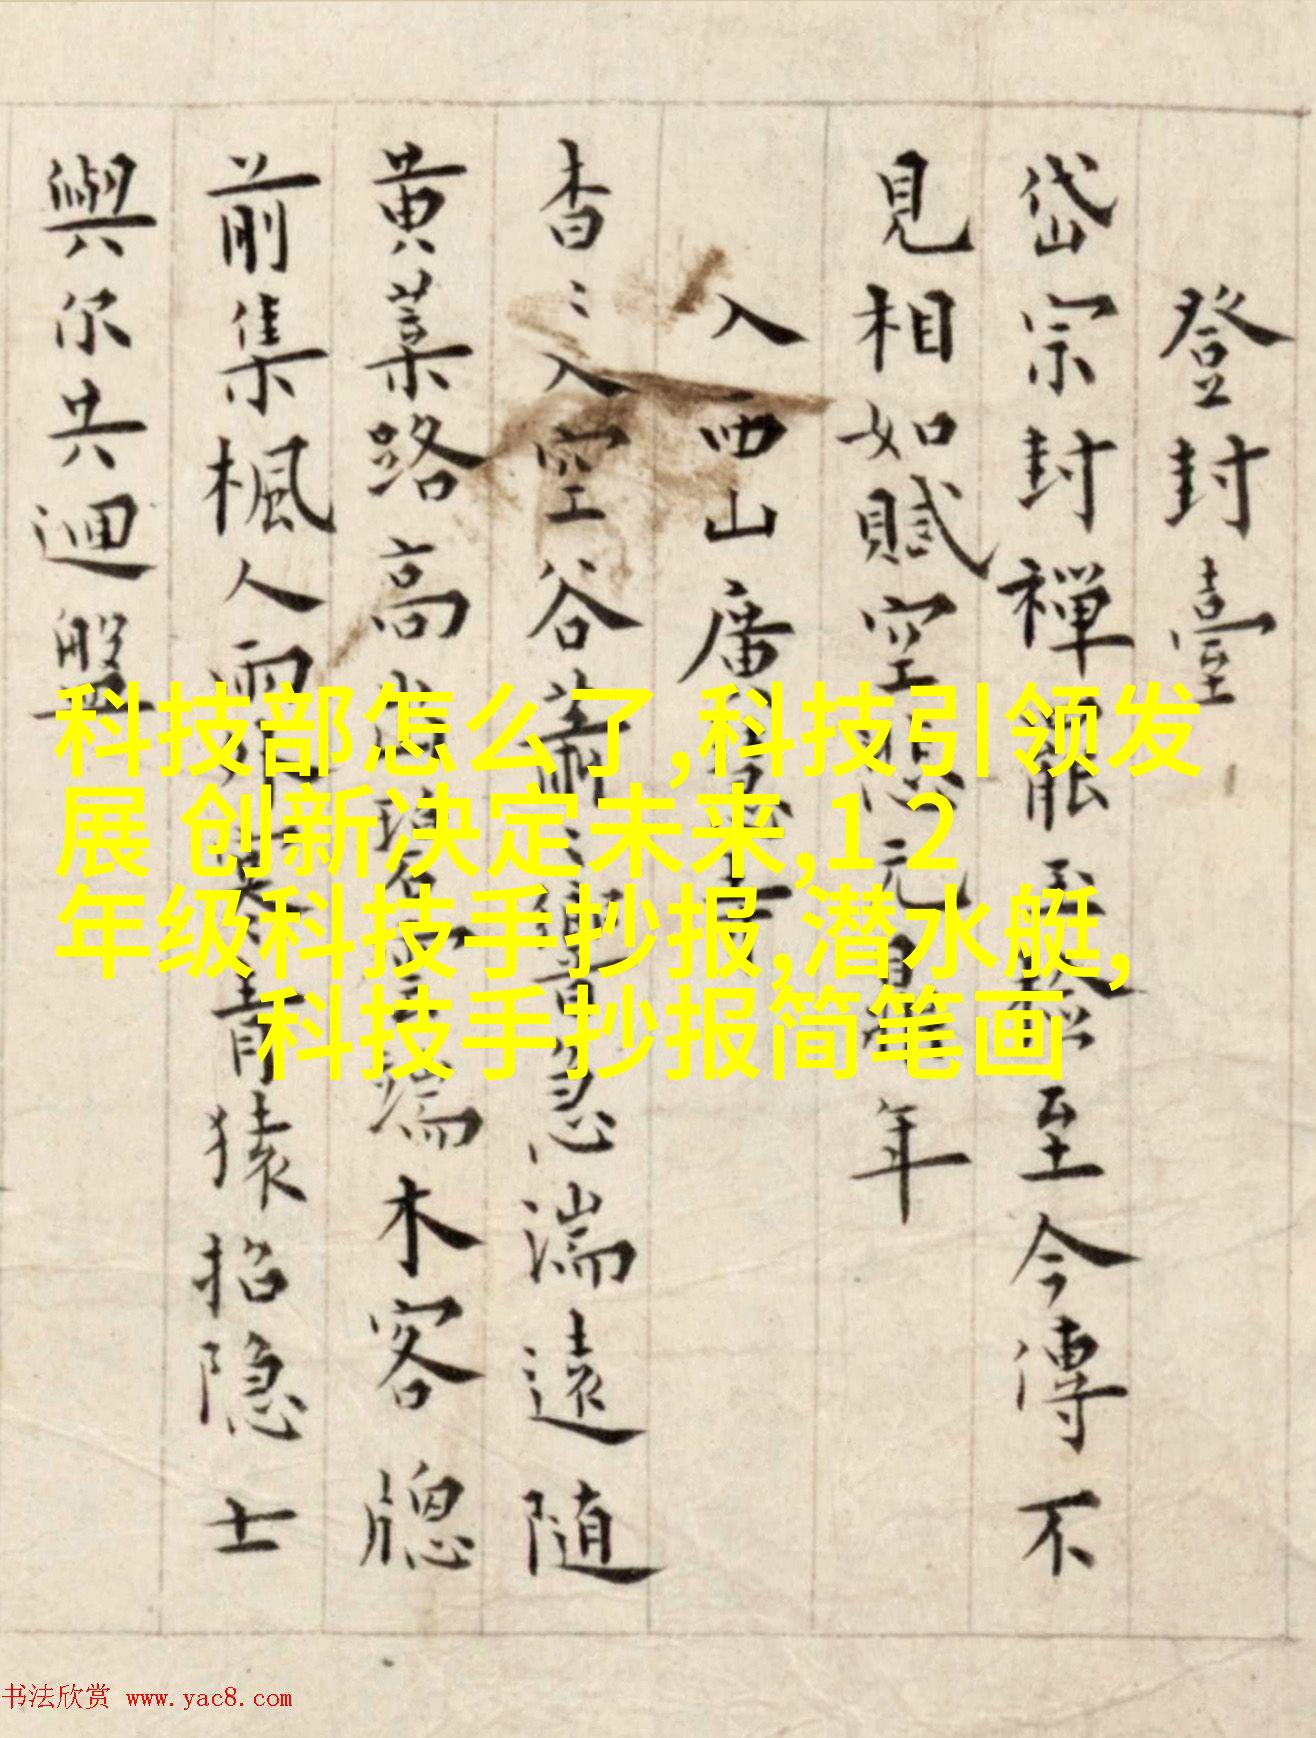 登封臺
岱宗封禪罷玉檢至今傳不
見相如賦空悲元鼎年
入西山廣
杳〻入空谷蕭〻音急湍遠随
黄葉路高碧端木客牕
前集楓人雨青猿招隐士
與尔共迴盤
科技部怎么了,科技引领发
展 创新决定未来,1 2
年级科技手抄报,潜水艇,
科技手抄报简笔画
书法欣赏 www.yac8.com